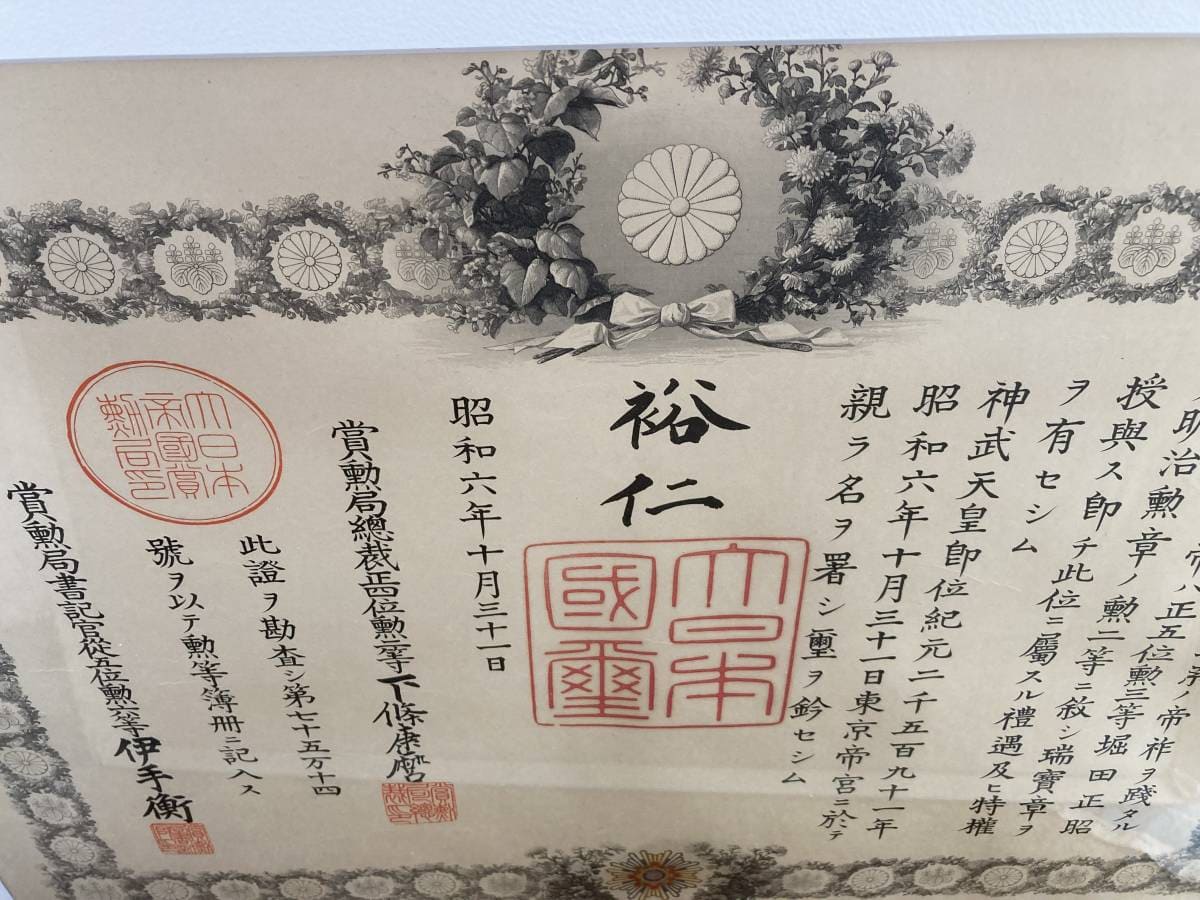 系ノ帝祚ヲ踐タル
帝ハ正五位勳三等堀田正昭
明治勳章ノ勳二等ニ敍シ瑞寶章ヲ
授與ス卽チ此位ニ屬スル禮遇及ヒ特權
ヲ有セシム
神武天皇卽位紀元二千五百九十一年
昭和六年十月三十一日東京帝宮ニ於テ
親ラ名ヲ署シ璽ヲ鈐セシム
裕仁
大日本
國璽
昭和六年十月三十一日
賞勳局總裁正四位勳等下條康麿
此證ヲ勘査シ第七十五万十四
號ヲ以テ勳等簿册ニ記入ス
大日本
帝國賞
勳局印
賞勳局書記官從五位勳等伊手衡